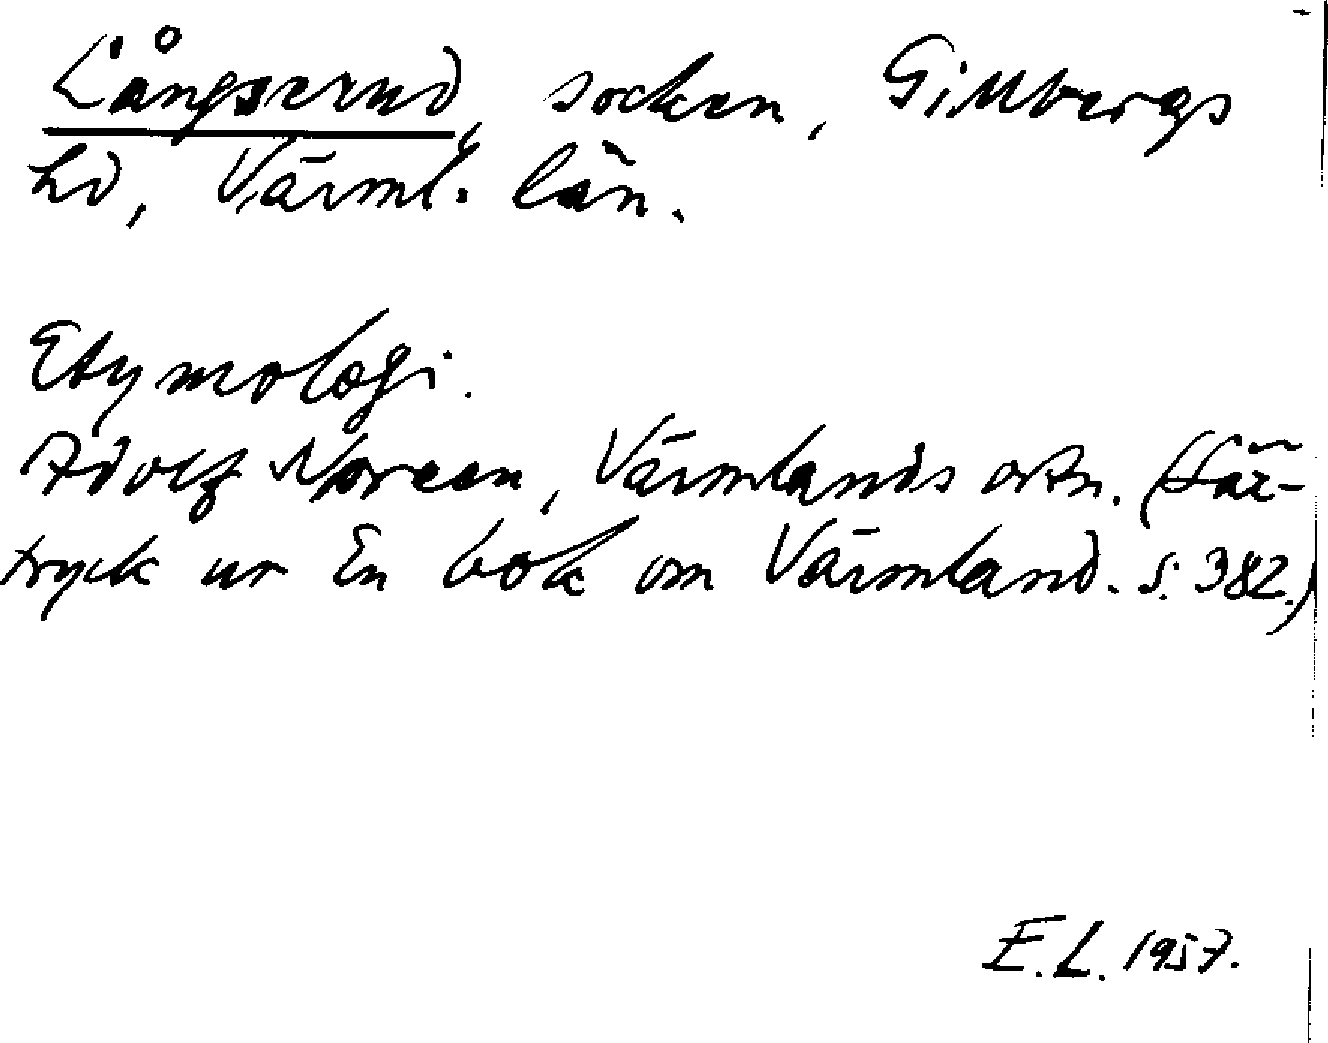 Långserud, socken, Gillbergs
hd, Värml. län.
Etymologi.
Adolf Noreen, Värmlands ortn. (Sär-
tryck ur En bok om Värmland. S. 382.)
E.L. 1957.